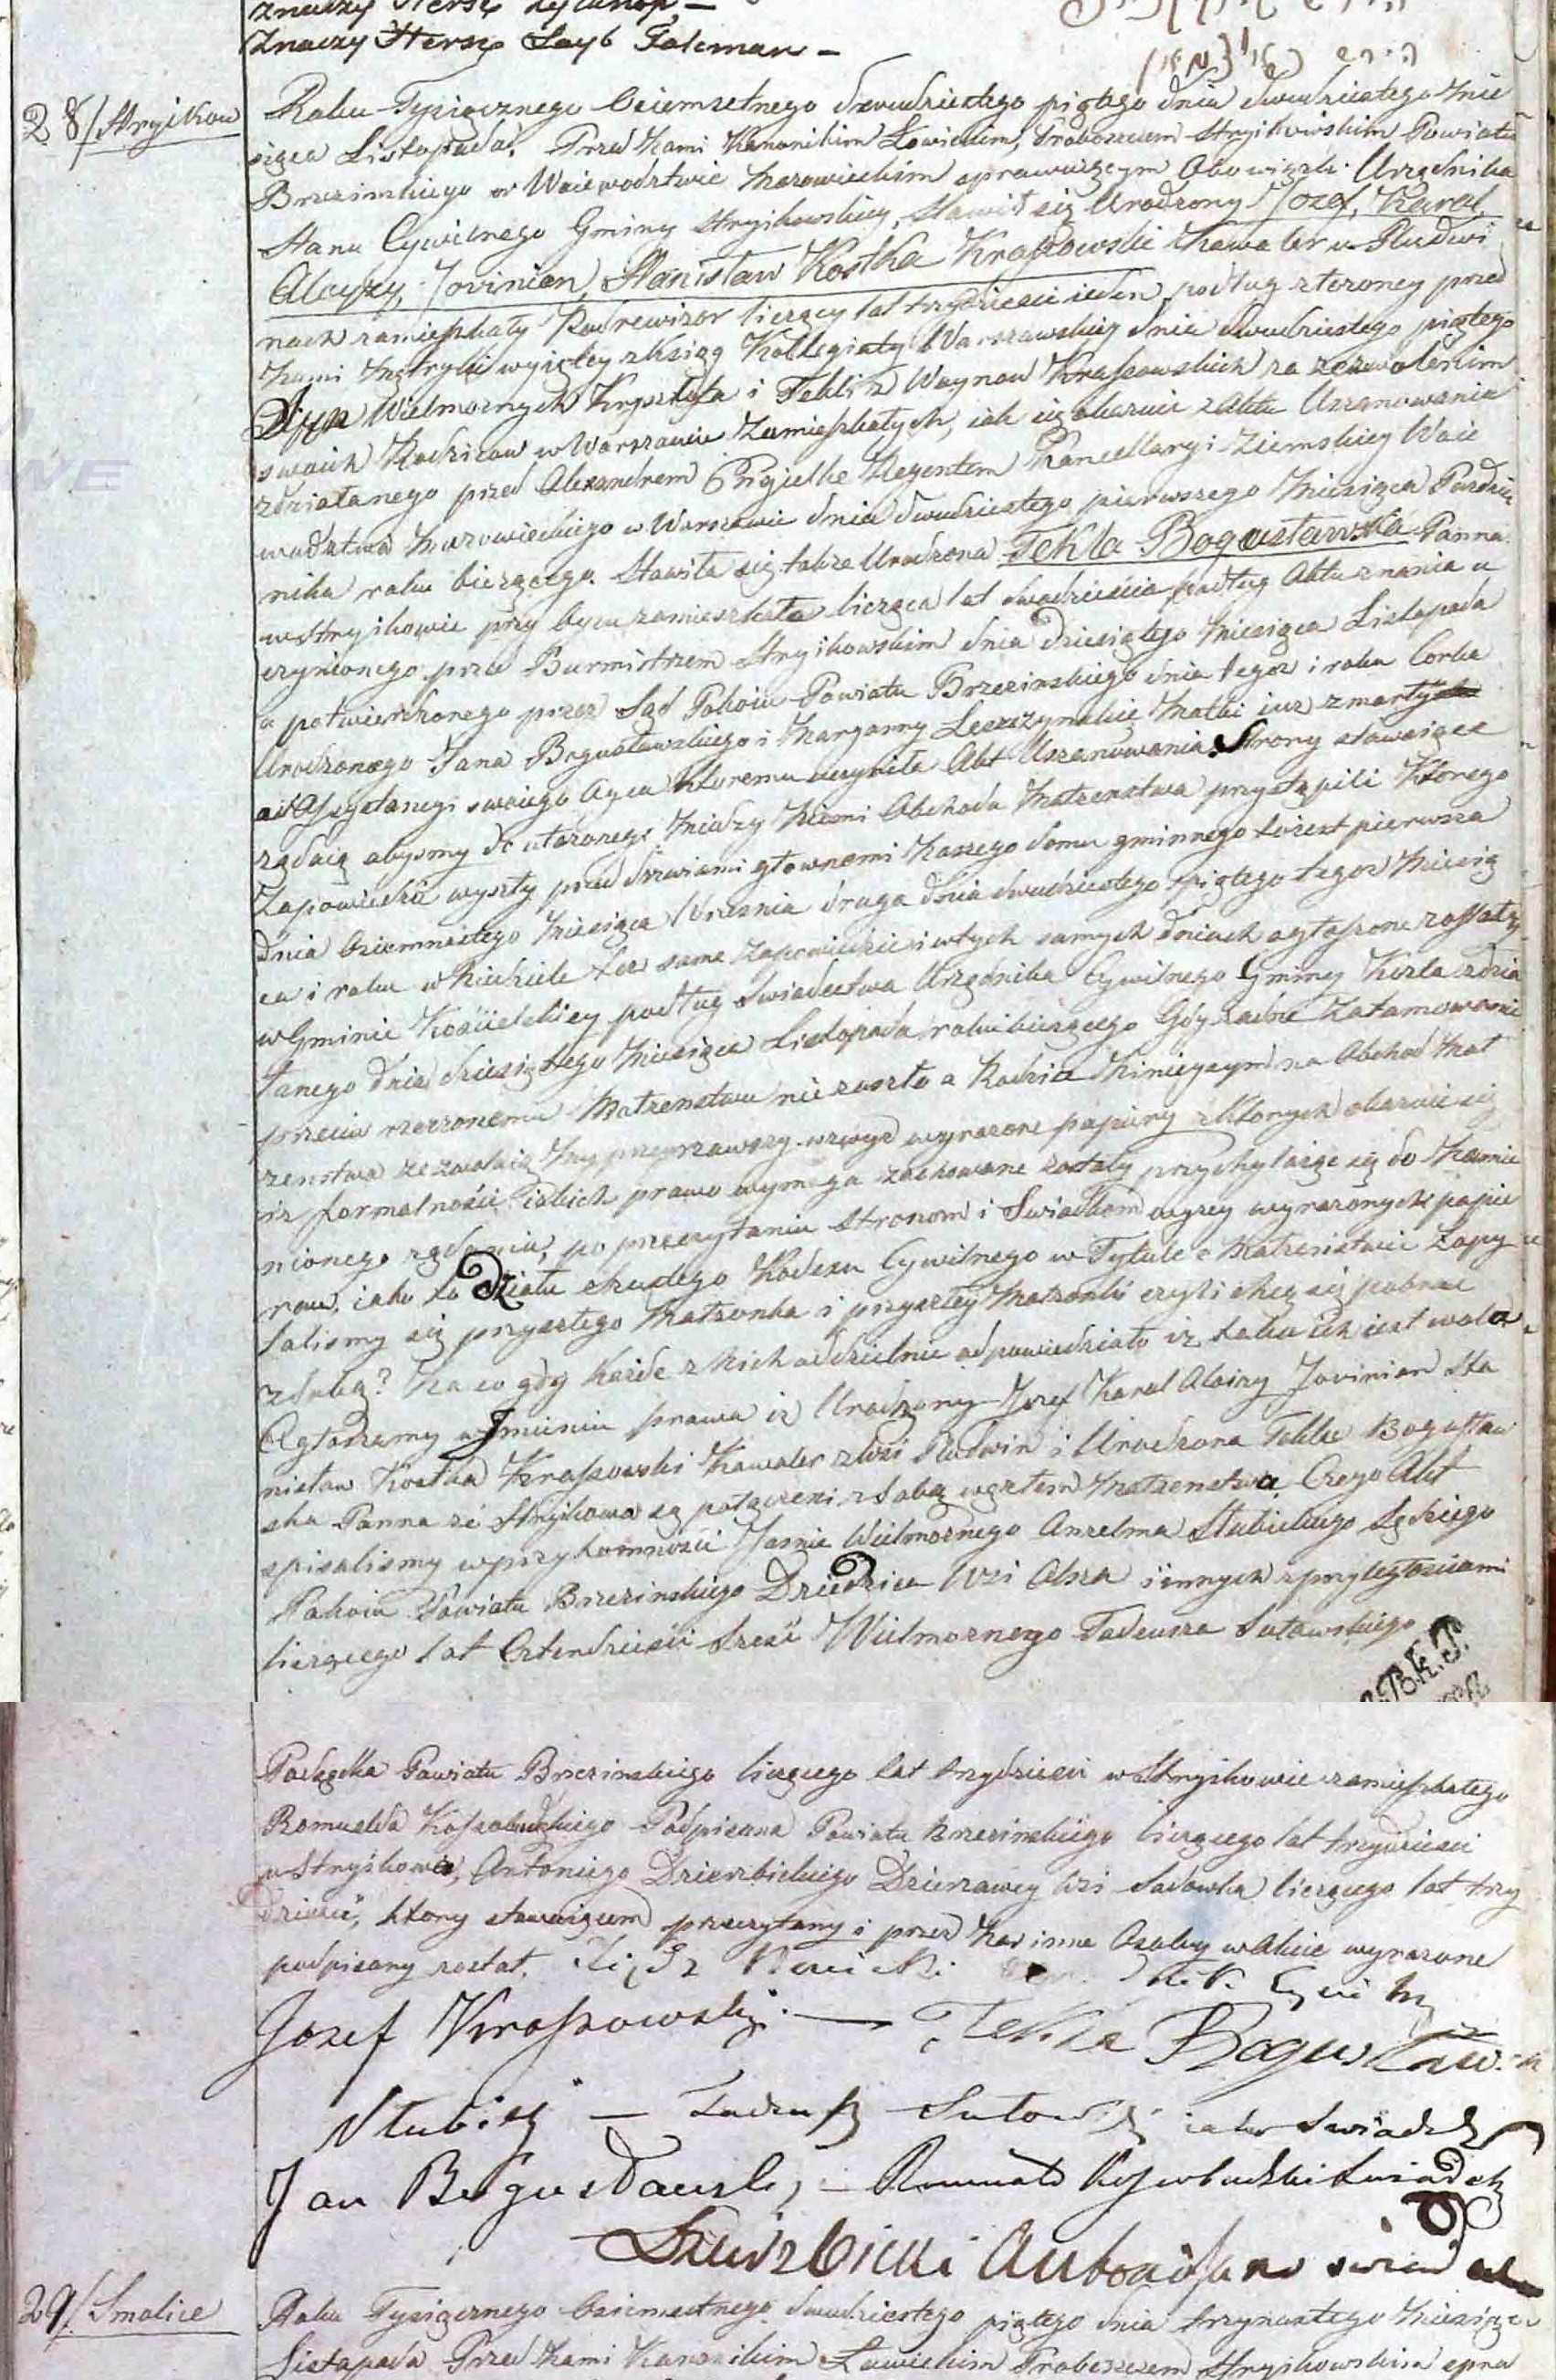 Znaczy Hersz
Znaczy Hersz Layb Folcman —
28/ Stryikow
Roku Tysiącznego Osiemsetnego dwudziestego piątego dnia dwudziestego Mie
siąca Listopada. Przed Nami Kanonikiem Łowickim, Proboszczem Strykowskim Powiatu
Brzezinskiego w Woiewodztwie Mazowieckim sprawuiącym Obowiązki Urzędnika
Stanu Cywilnego Gminy Strykowskiey, Stawił się Urodzony Jozef, Karol,
Aloyzy, Jovinian, Stanisław Kostka Kraszowski Kawaler w Rudwi
nach zamieszkały Podrewizor liczący lat trzydzieści ieden, podług złożoney przed
Nami Metryki wyiętey z Xiąg Kollegiaty Warszawskiey dnia dwudziestego piątego
Syn Wielmoznych Krysztofa i Tekli z Woynow Kraszowskich za zezwoleniem
swoich Rodzicow w Warszawie Zamieszkałych, iak się okazuie z Aktu Uszanowania
zdziałanego przed Alexandrem Regentem Kancellaryi Ziemskiey Woie
wodztwa Mazowieckiego w Warszawie dnia dwudziestego pierwszego Miesiąca Pazdzier
nika roku bieżącego. Stawiła się także Urodzona Tekla Bogusławska Panna
w Strykowie przy Oycu zamieszkała licząca lat dwadzieścia podług Aktu znania u
czynionego przed Burmistrzem Strykowskim dnia dziesiątego Miesiąca Listopada
a potwierdzonego przez Sąd Pokoiu Powiatu Brzezinskiego dnia tegoz i roku Corka
Urodzonego Jana Bogusławskiego i Maryanny Leszczynskiej Matki iuz zmarłych
Assystencyi swoiego Oyca ktoremu uczyniła Akt Uszanowania. Strony stawaiące
ządaią abysmy do ułożonego między Niemi Obchodu Małzenstwa przystąpili ktorego
Zapowiedzie wyszły przed drzwiami głownemi Naszego domu gminnego to iest pierwsza
dnia Osiemnastego Miesiąca Wrzesnia druga dnia dwudziestego piątego tegoz Miesią
ca i roku w Niedziele też same Zapowiedzie i w tych samych dniach ogłoszone zostały
w Gminie podług Swiadectwa Urzędnika Cywilnego Gminy Kozla zdzia
łanego dnia dziesiątego Miesiąca Listopada roku bieżącego. Gdy zadne Zatamowanie
przeciw rzeczonemu Małzenstwu nie zaszło a Rodzice Niniejszym na Obchod Mał
zenstwa zezwalaią, My przeyrzawszy wzwyz wyrazone papiery z ktorych okazuie się
iz formalności iakich prawo wymaga zachowane zostały przychylaiąc się do Nomie
nionego ządania, po przeczytaniu Stronom i Swiadkom wyzey wyrazonych papie
row, iako to Działu szustego Kodexu Cywilnego w Tytule o Małzenstwie Zapy
talismy się przyszłego Małzonka i przyszłey Małzonki czyli chcą się pobrac
z sobą? Na co gdy każde z Nich oddzielnie odpowiedziało iz taka ich iest wola
Ogłaszamy w Jmieniu prawa iz Urodzony Jozef Karol Aloizy Jovinian Sta
nisław Kostka Kraszowski Kawaler z Wsi Rudwin i Urodzona Tekla Bogusław
ska Panna ze Strykowa są połączeni z Sobą węzłem Małzenstwa Czego Akt
spisalismy w przytomności Jasnie Wielmoznego Anzelma Stubickiego Sędziego
Pokoiu Powiatu Brzezinskiego Dziedzica Wsi Osza i innych z przyległosciami
liczącego lat Czterdziesci Szesc Wielmoznego Tadeusza Sutowskiego
Podsędka Powiatu Brzezinskiego liczącego lat trzydziesci w Strykowie zamieszkałego
Romualda Kossobudzkiego Podpisarza Powiatu Brzezinskiego liczącego lat trzydziesci
w Strykowie, Antoniego Dzierzbickiego Dzierzawcy Wsi Sadowka liczącego lat trzy
dziesci, ktory stawaiącem przeczytany i przez Nas i inne Osoby w Akcie wyrazone
podpisany został.
Jozef Kraszowski — Tekla Bogusławska
Stubicki — Tadeusz Sutowski iako Swiadek
Jan Bogusławski, — Romuald Kossobudzki Swiadek
Dzierzbicki Antoni Jako swiadek
29/ Smolice
Roku Tysiącznego Osiemsetnego dwudziestego piątego dnia trzynastego Miesiąca
Listopada Przed Nami Kanonikiem Łowickim Proboszczem Strykowskim spra